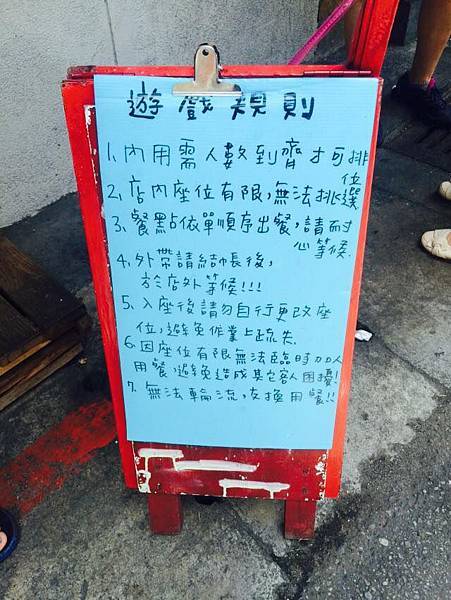 遊戲規則
1、內用需人數到齊才可排
位
2、店內座位有限，無法挑選
3、餐點依單順序出餐，請耐
心等候.
4、外帶請結帳後，
於店外等候!!!
5、入座後請勿自行更改座
位，避免作業上疏失.
6、因座位有限無法臨時加人
用餐，避免造成其它客人困擾!
7、無法輪流，交換用餐!!